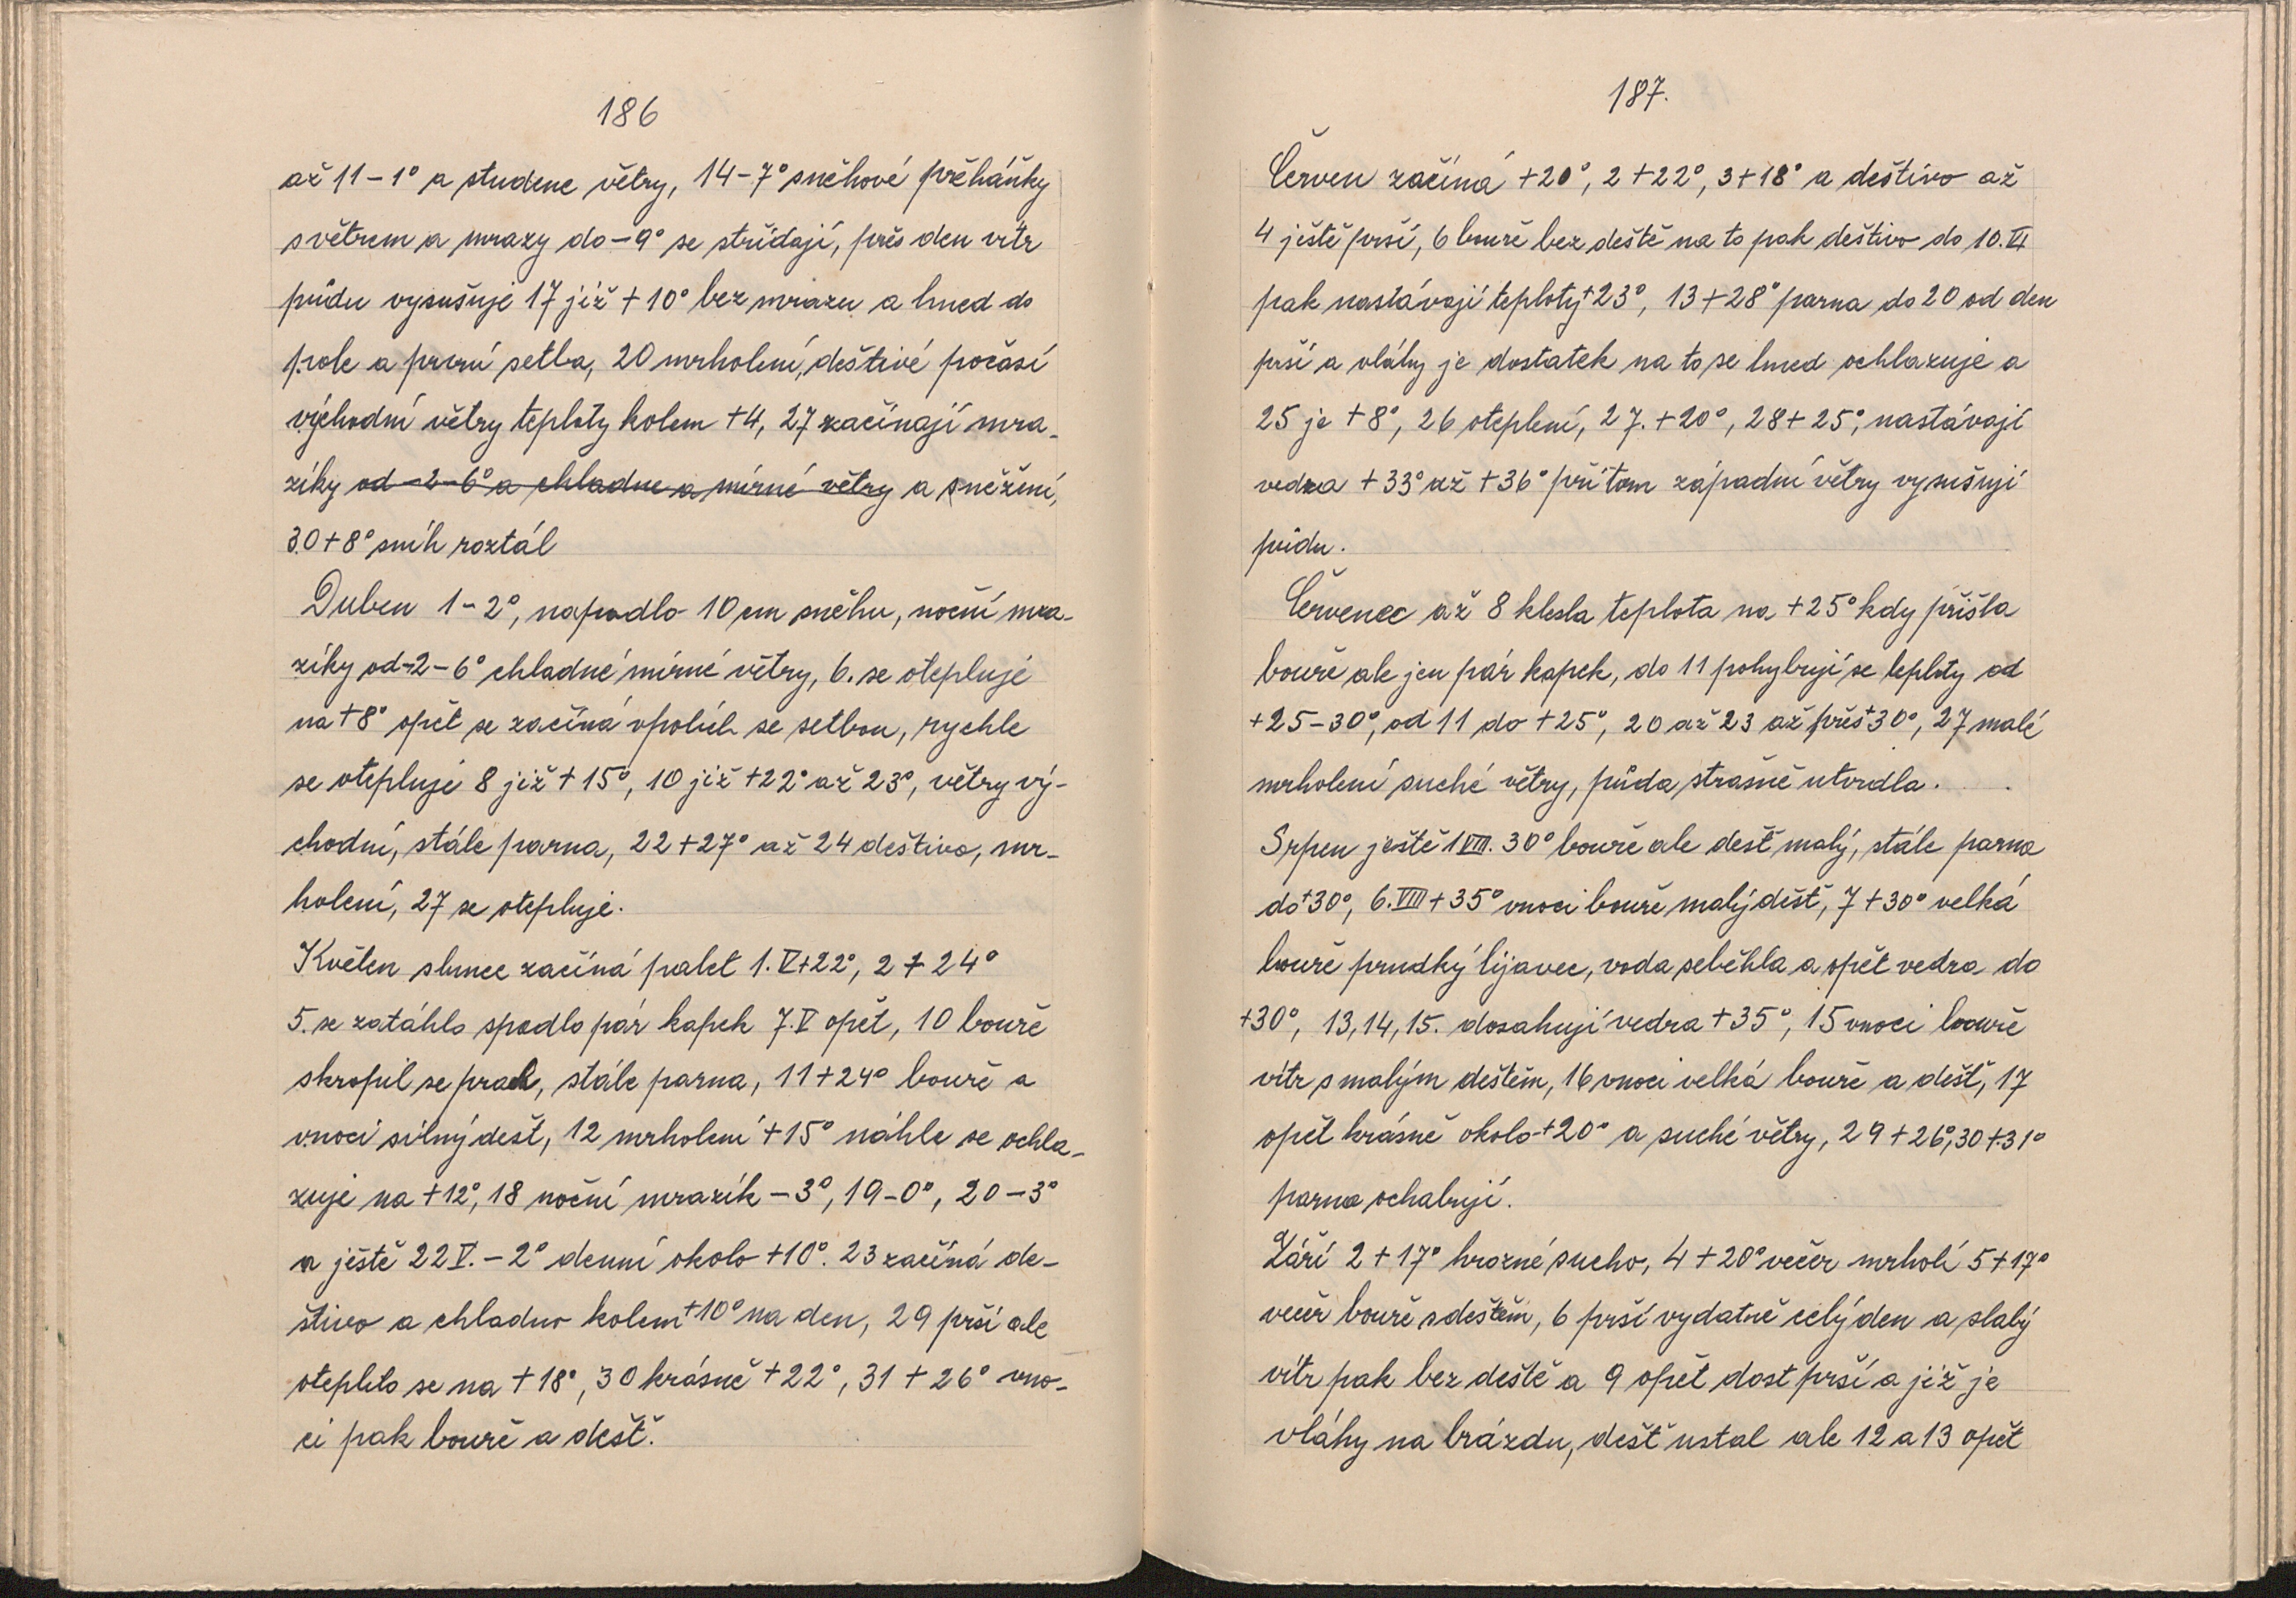 186
až 11 – 1° a studene větry, 14 – 7° sněhové přěháňky
s větrem a mrazy do – 9° se střídají, přes den vítr
půdu vysušuje 17 již + 10° bez mrazu a hned do
pole a první setba, 20 mrholení, deštivé počasí
východní větry teploty kolem + 4, 27 začínají mra-
zíky od – 2 – 6° a chladne a mírné větry a sněžení,
30 + 8° sníh roztál
Duben 1 – 2°, napadlo 10 cm sněhu, noční mra-
zíky od – 2 – 6° chladné mírné větry, 6. se otepluje
na + 8° opět se začíná v polích se setbou, rychle
se otepluje 8 již + 15°, 10 již + 22° až 23°, větry vý-
chodní, stále parna, 22 + 27° až 24 deštivo, mr-
holení, 27 se otepluje.
Květen slunce začíná palet 1. V + 22°, 2 + 24°
5. se zatáhlo spadlo pár kapek 7. V opět, 10 bouře
skropil se prach, stále parna, 11 + 24° bouře a
v noci silný dešt, 12 mrholení + 15° náhle se ochla-
zuje na + 12°, 18 noční mrazík – 3°, 19 – 0°, 20 – 3°
a ještě 22 V. – 2° denní okolo + 10°. 23 začíná de-
štivo a chladno kolem + 10° na den, 29 prší ale
oteplilo se na + 18°, 30 krásně + 22°, 31 + 26° vno-
ci pak bouře a dešť.
187.
Červen začíná + 20°, 2 + 22°, 3 + 18° a deštivo až
4 ještě prší, 6 bouře bez deště na to pak deštivo do 10. VI
pak nastávají teploty + 23°, 13 + 28° parna do 20 od den
prší a vláhy je dostatek na to se hned ochlazuje a
25 je + 8°, 26 oteplení, 27. + 20°, 28 + 25°, nastávají
vedra + 33° až + 36° při tom západní větry vysušují
půdu.
Červenec až 8 klesla teplota na + 25° kdy přišla
bouře ale jen pár kapek, do 11 pohybují se teploty od
+ 25 – 30°, od 11 do + 25°, 20 až 23 až přes + 30°, 27 malé
mrholení suché větry, půda strašně utvrdla.
Srpen ještě 1 VIII. 30° bouře ale dešť malý, stále parna
do + 30°, 6. VIII + 35° v noci bouře malý déšť, 7 + 30° velká
bouře prudký lijavec, voda seběhla a opět vedra do
+ 30°, 13, 14, 15. dosahují vedra + 35°, 15 v noci bouře
vítr s malým deštěm, 16 v noci velká bouře a déšť, 17
opět krásně okolo + 20° a suché větry, 29 + 26°, 30 + 31°
parna ochabují.
Září 2 + 17° hrozné sucho, 4 + 20° večer mrholí 5 + 17°
večer bouře s deštěm, 6 prší vydatně celý den a slabý
vítr pak bez deště a 9 opět dost prší a již je
vláhy na brázdu, dešť ustal ale 12 a 13 opět